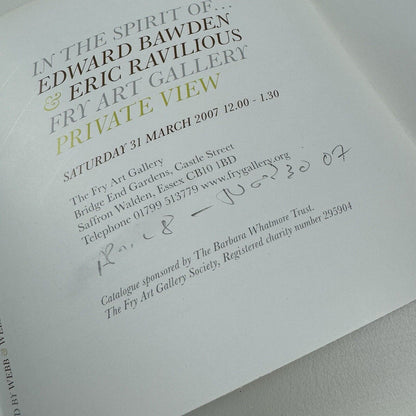 IN THE SPIRIT OF...
EDWARD BAWDEN
& ERIC RAVILIOUS
FRY ART GALLERY
PRIVATE VIEW
SATURDAY 31 MARCH 2007 12.00 - 1.30
The Fry Art Gallery
Bridge End Gardens, Castle Street
Saffron Walden, Essex CB10 1BD
Telephone 01799 513779 www.frygallery.org
30 07
Catalogue sponsored by The Barbara Whatmore Trust.
The Fry Art Gallery Society, Registered charity number 295904
D BY WEBB & WE